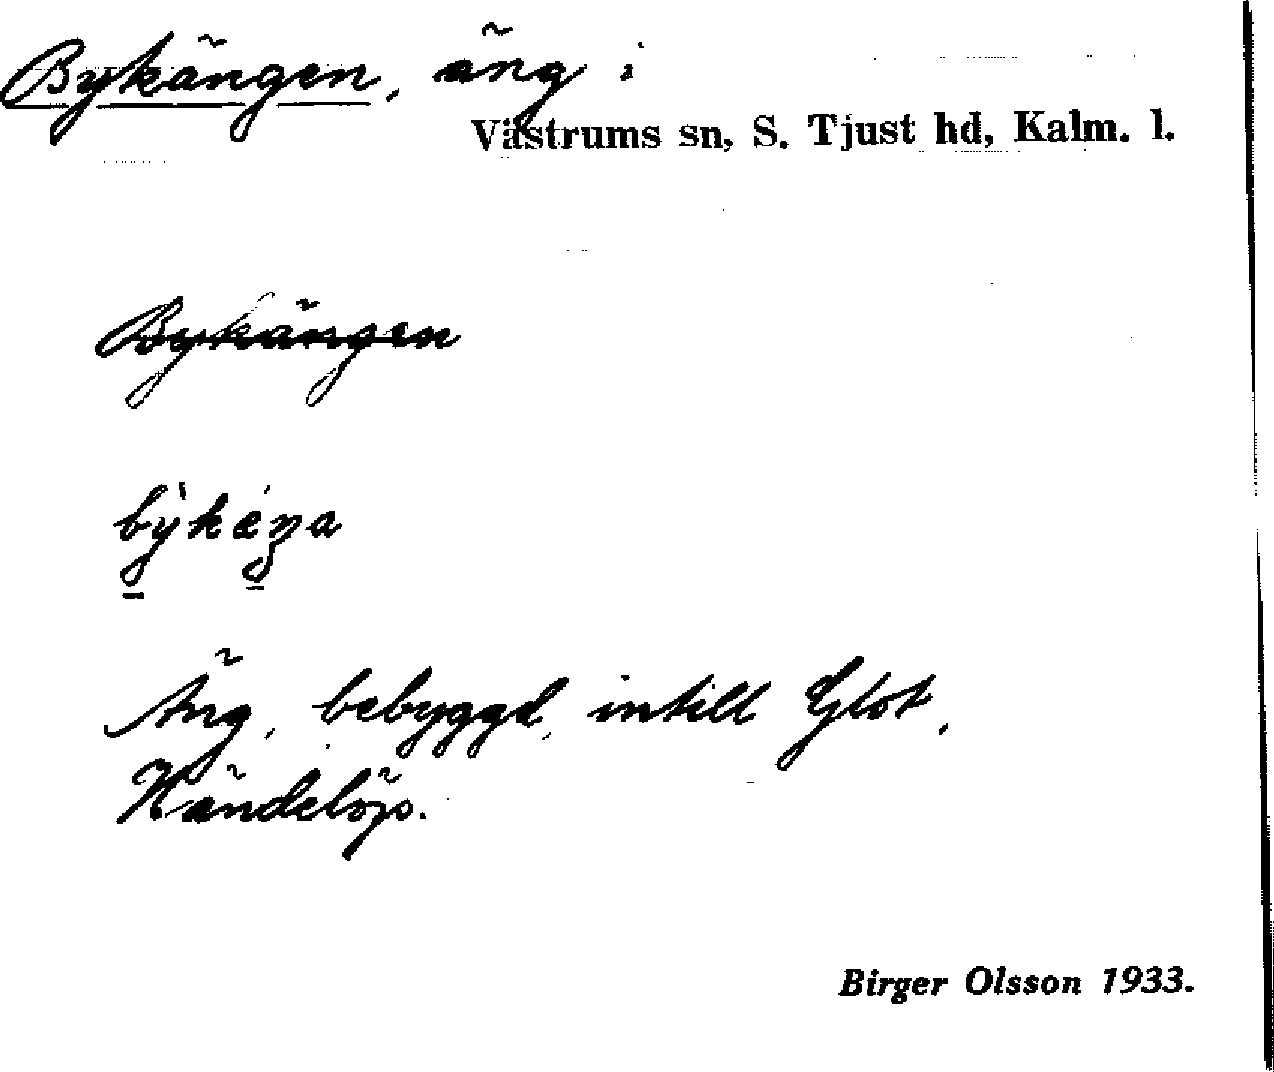 Bykängen, äng i
Västrums sn, S. Tjust hd, Kalm. l.
Bykängen
Äng, bebyggd, intill Glot,
Händelöp.
Birger Olsson 1933.